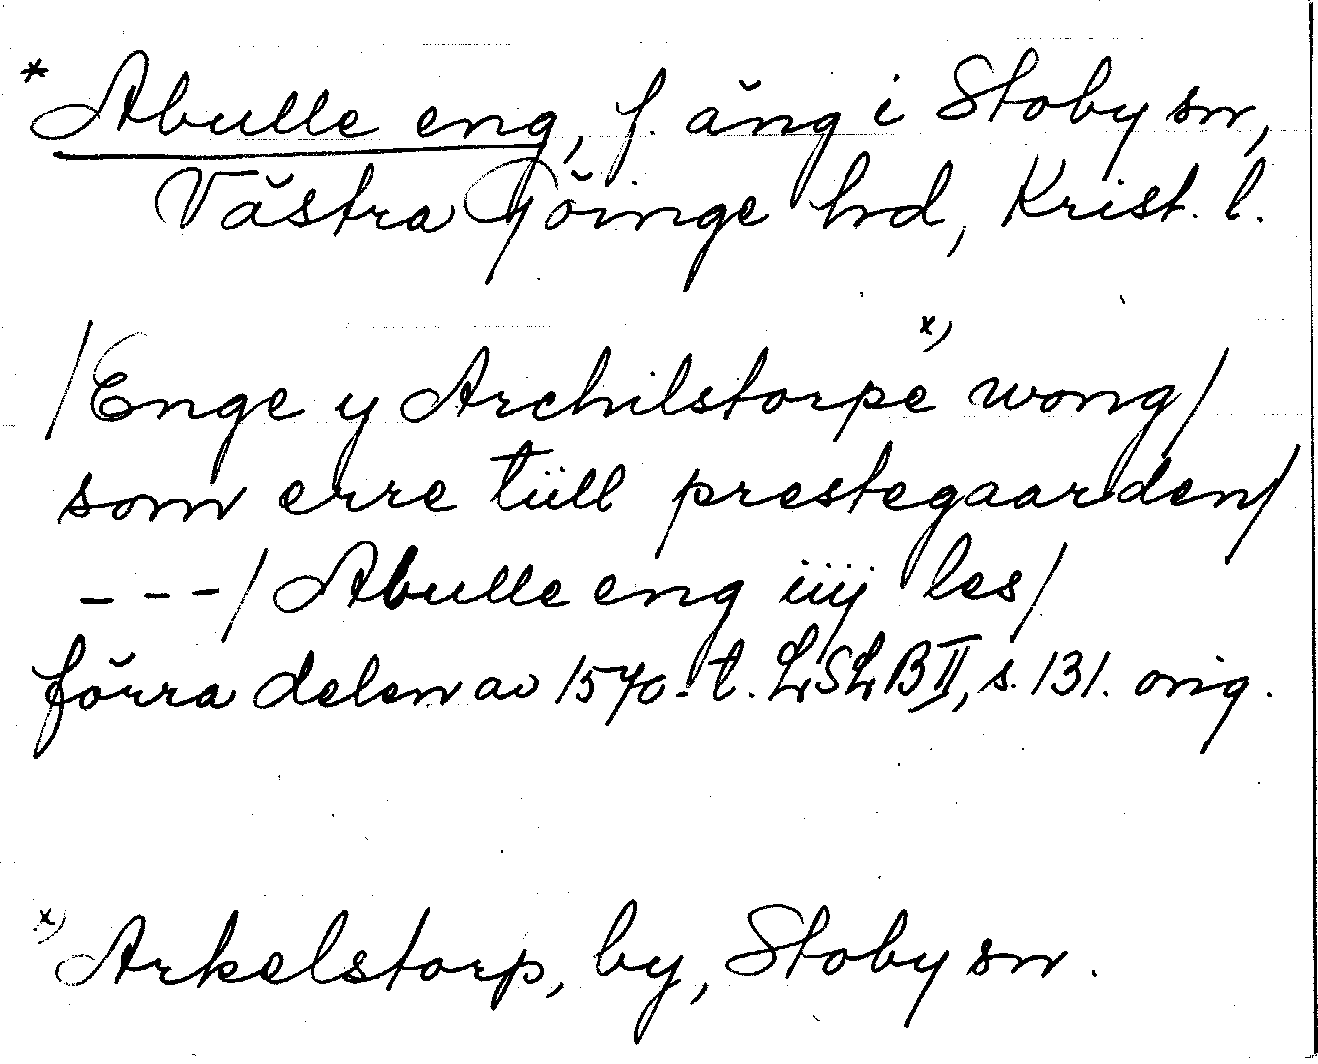 * Abulle eng, f. äng i Stoby sn,
Västra Göinge hd, Krist. l.
/Enge y Archilstorpe x) wong/
som erre tüll prestegaarden/
---/ Abulle eng iiij les/
förra delen av 1570-t. LSLB II, s. 131. orig.
x) Arkelstorp, by, Stoby sn.